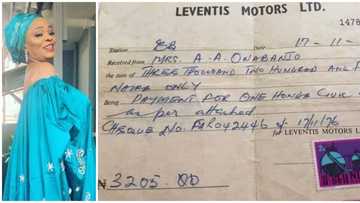 LEVENTIS MOTORS LTD.
1478
Station EB 17-11-
Received from MRS. A. A. ONABANJO
the sum of THREE THOUSAND TWO HUNDRED AND
NAIRA ONLY
Being PAYMENT FOR ONE HONDA CIVIC
as per attached
CHEQUE NO. of 17/11/76
for LEVENTIS MOTORS
N 3205.00